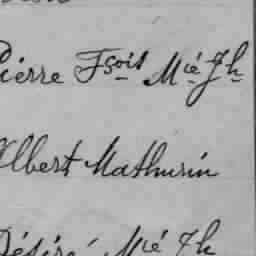 Pierre Fsois Mié Jh
Albert Mathurin
Désiré Mié Jh